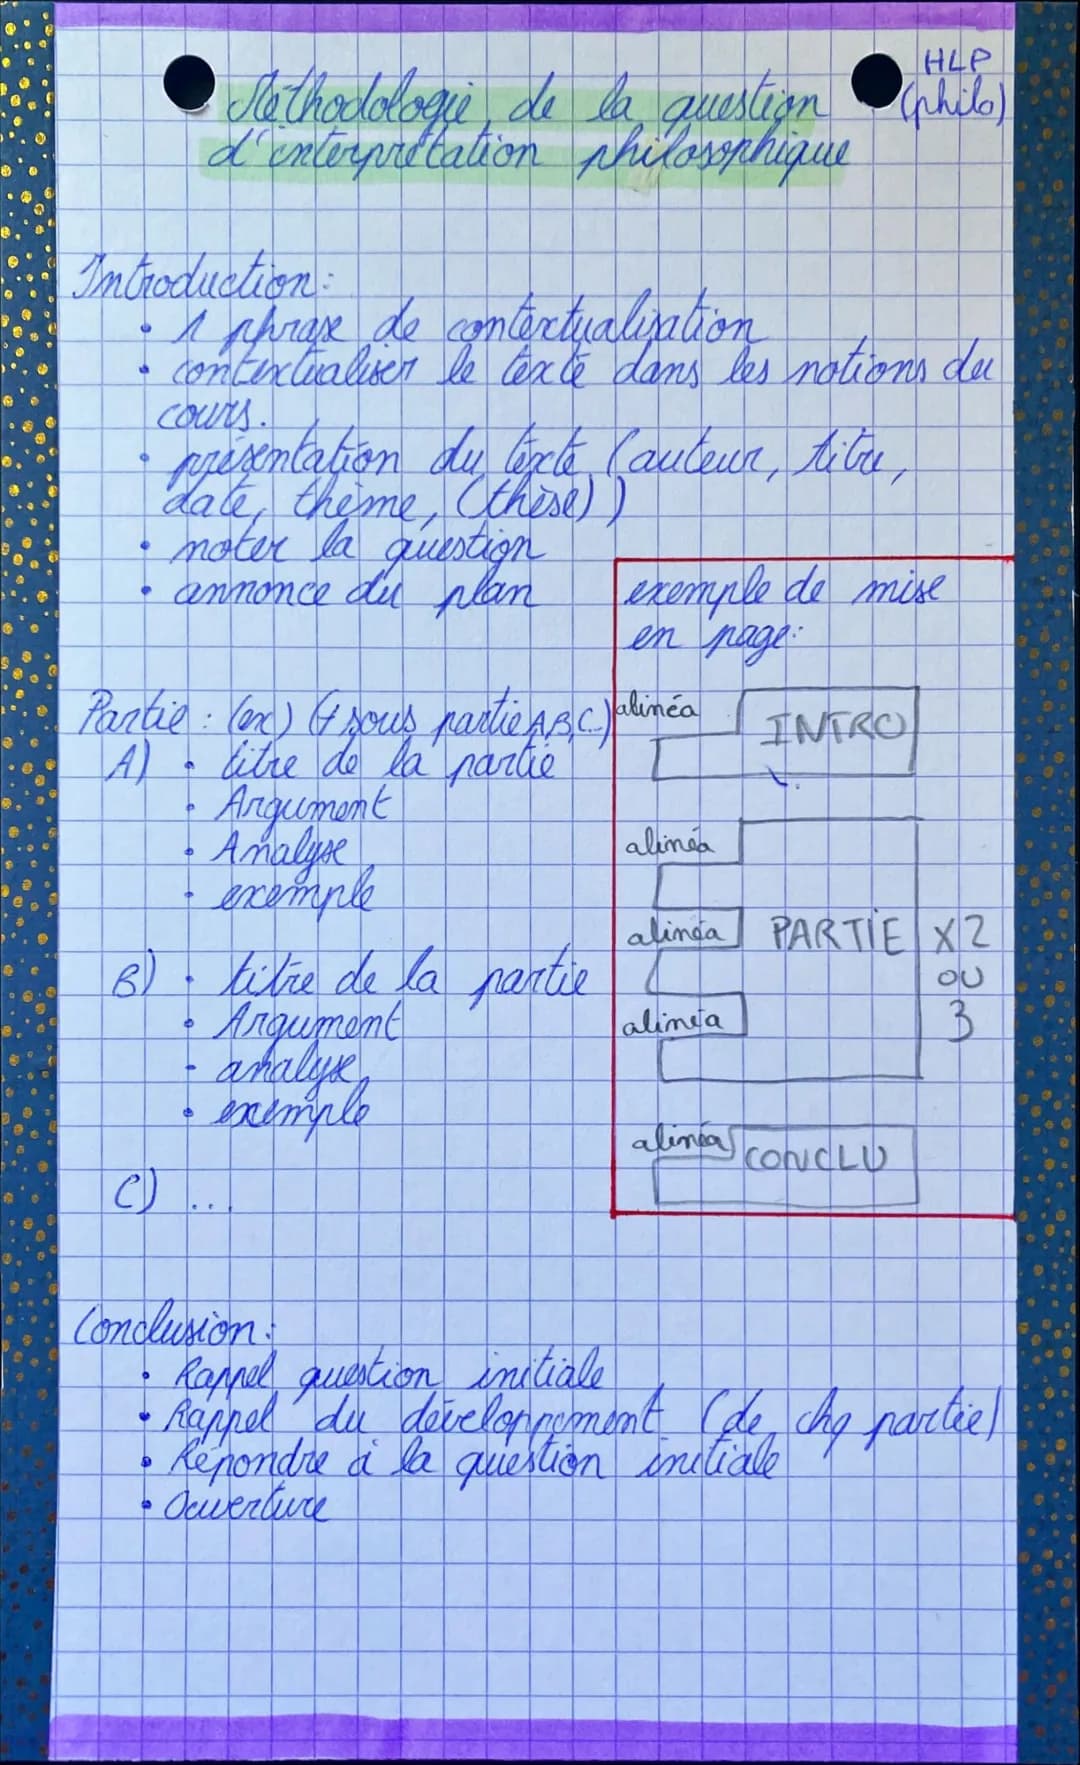 HLP
(philo)
Méthodologie de la question
d'interprétation philosophique
Introduction:
• 1 phrase de contextualisation
• contextualiser le texte dans les notions du
cours.
• présentation du texte (auteur, titre,
date, thème, (thèse))
• noter la question
• annonce du plan
Partie : (ex) (+ sous partie A,B,C..)
A) • titre de la partie
• Argument
• Analyse
• exemple
B) • titre de la partie
• Argument
- analyse
• exemple
C) ...
exemple de mise
en page:
alinéa INTRO
alinéa
alinéa PARTIE X2
OU
alinéa 3
alinéa CONCLU
Conclusion:
• Rappel question initiale
• Rappel du développement (de chq partie)
• Répondre à la question initiale
• Ouverture